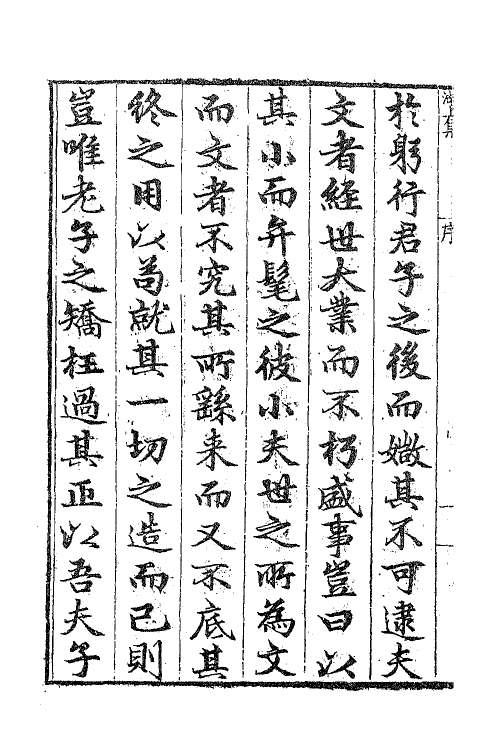 於躬行君子之後而媺其不可逮夫
文者經世大業而不朽盛事豈曰以
其小而弁髦之彼小夫世之所為文
而文者不究其所繇来而又不底其
終之用以為就其一切之造而己則
豈唯老子之矯枉過其正以吾夫子
序